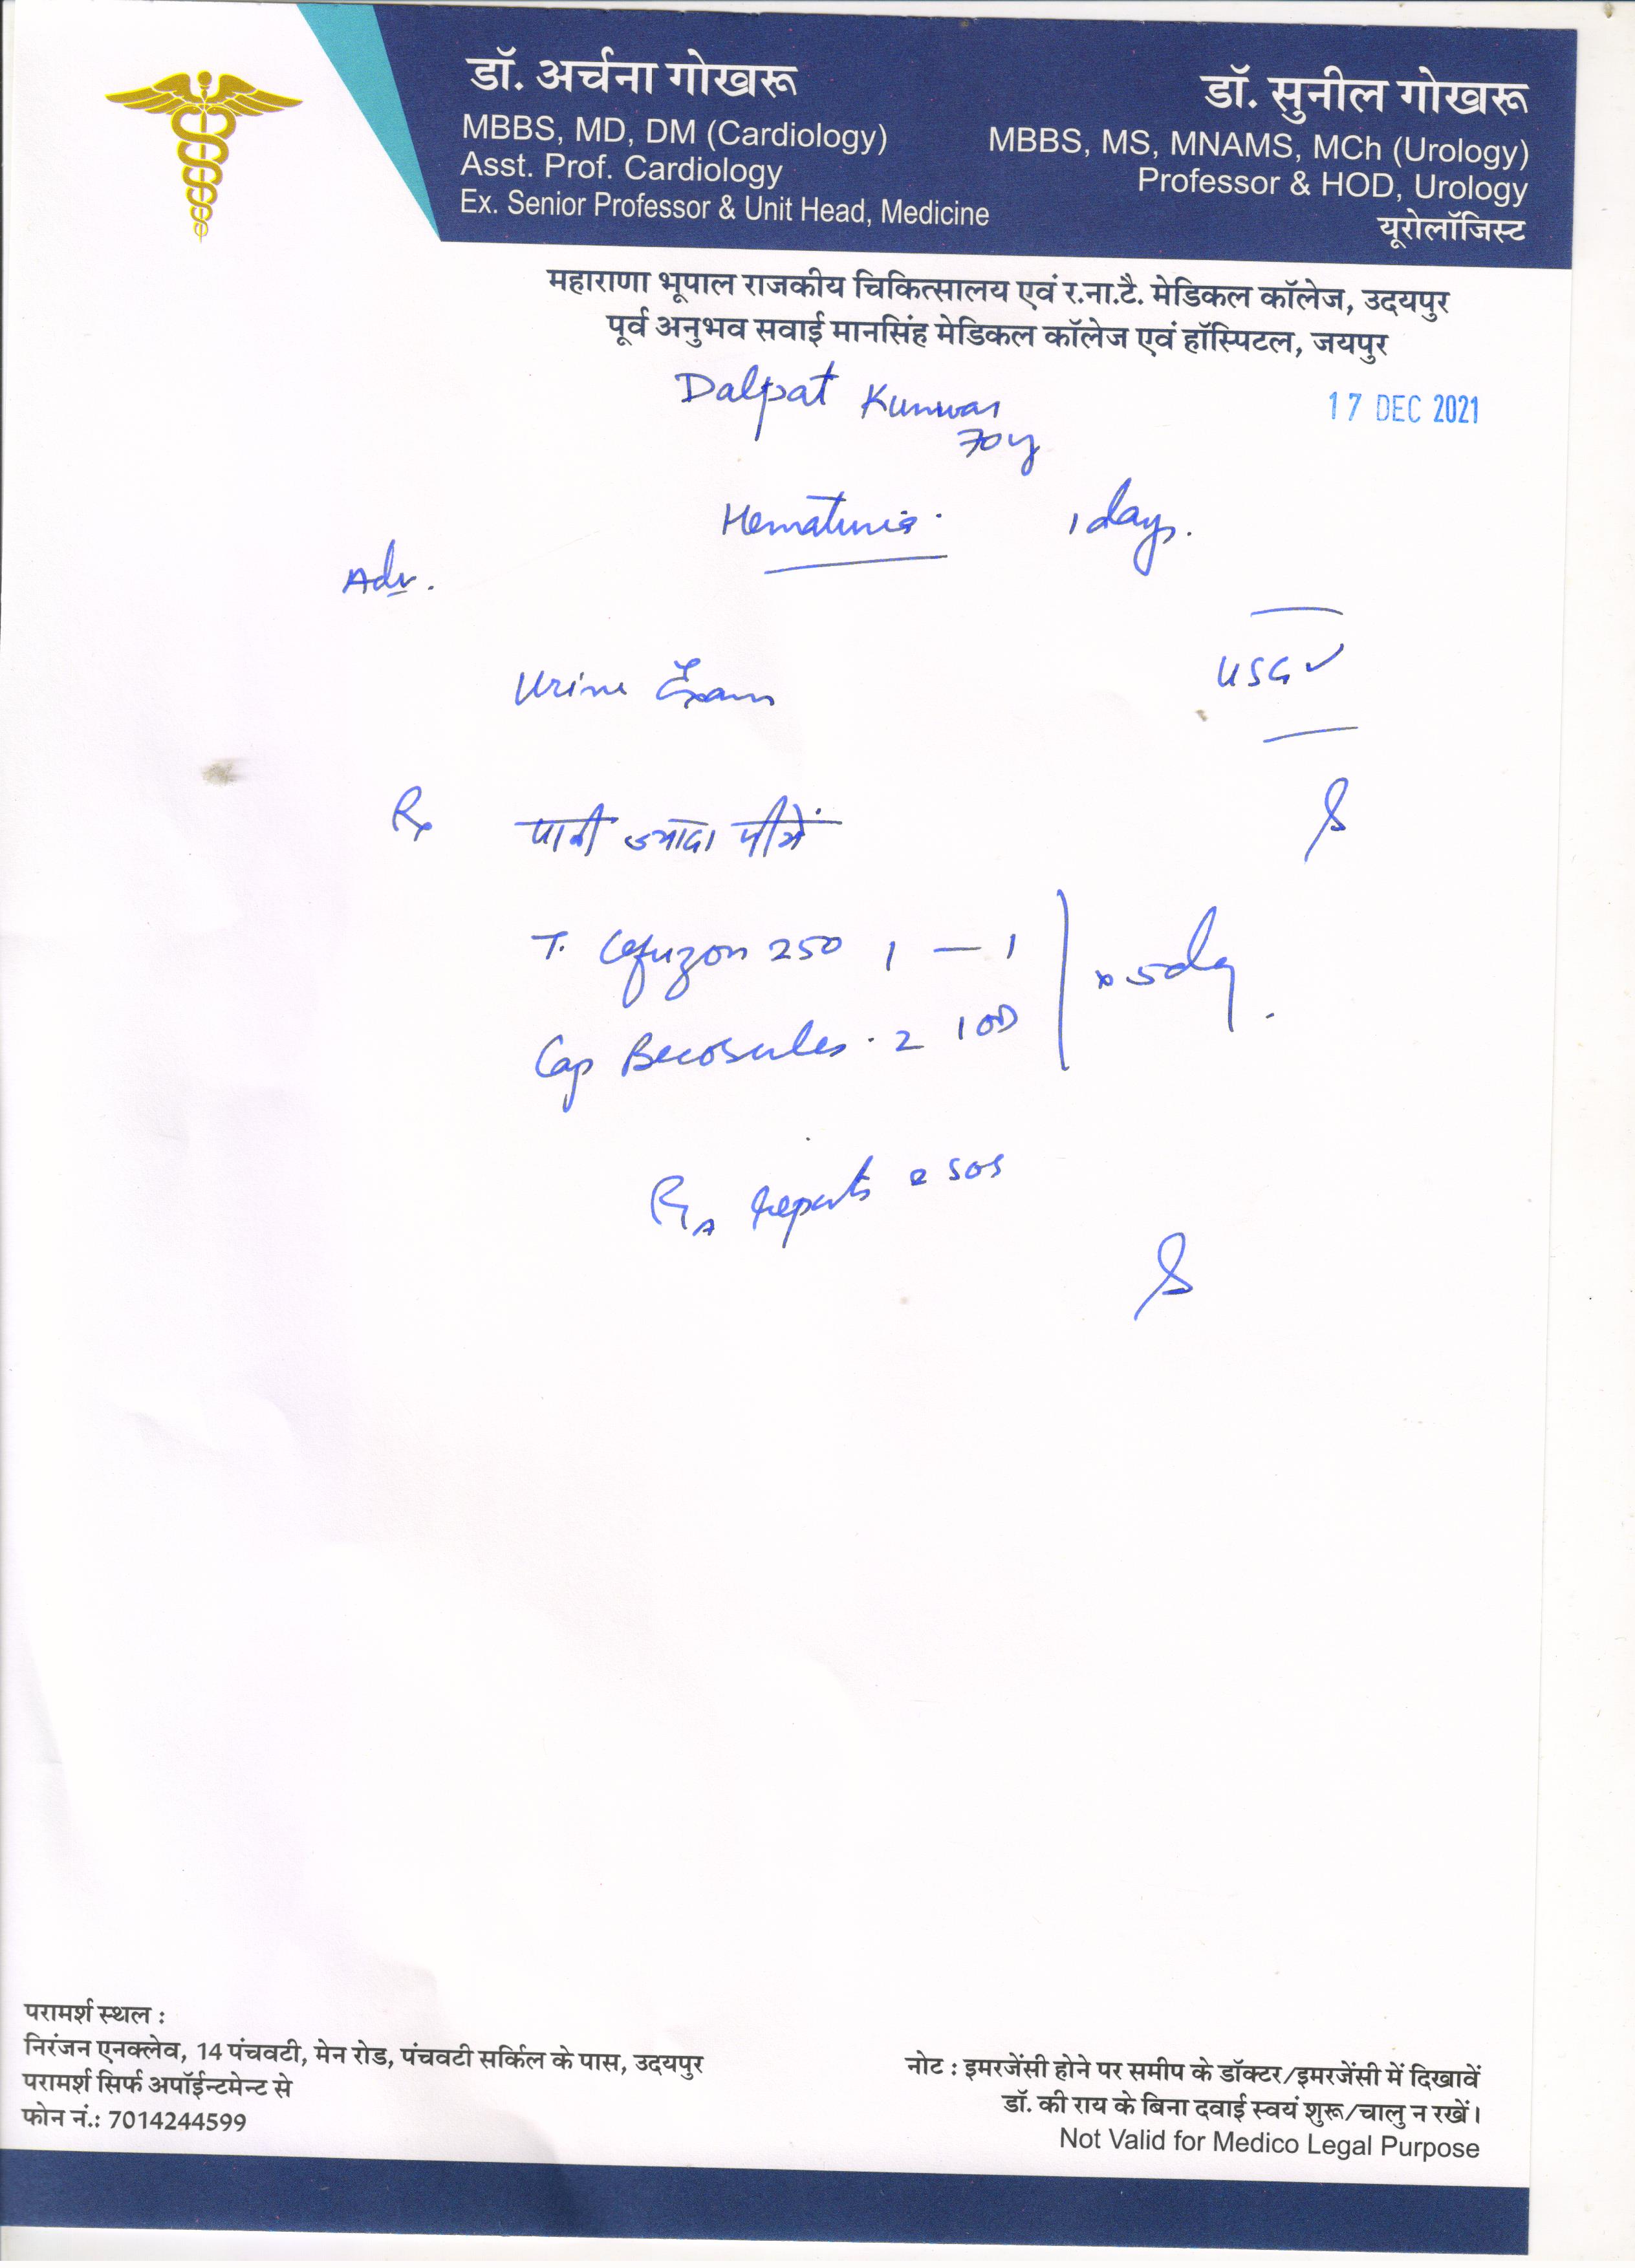 डॉ. अर्चना गोखरू
MBBS, MD, DM (Cardiology)
Asst. Prof. Cardiology
Ex. Senior Professor & Unit Head, Medicine
डॉ. सुनील गोखरू
MBBS, MS, MNAMS, MCh (Urology)
Professor & HOD, Urology
यूरोलॉजिस्ट
महाराणा भूपाल राजकीय चिकित्सालय एवं र.ना.टै. मेडिकल कॉलेज, उदयपुर
पूर्व अनुभव सवाई मानसिंह मेडिकल कॉलेज एवं हॉस्पिटल, जयपुर
Dalpat Kunwar
17 DEC 2021
70y
Hematuria. 1 days.
Adv.
Urine Exam
USG ✓
Rx पानी ज्यादा पीयें
T. 250 1 — 1
Cap Becosules. 2 1 OD
x 5 day.
reports SOS
परामर्श स्थल :
निरंजन एनक्लेव, 14 पंचवटी, मेन रोड, पंचवटी सर्किल के पास, उदयपुर
परामर्श सिर्फ अपॉईन्टमेन्ट से
फोन नं.: 7014244599
नोट : इमरजेंसी होने पर समीप के डॉक्टर/इमरजेंसी में दिखावें
डॉ. की राय के बिना दवाई स्वयं शुरू/चालु न रखें।
Not Valid for Medico Legal Purpose